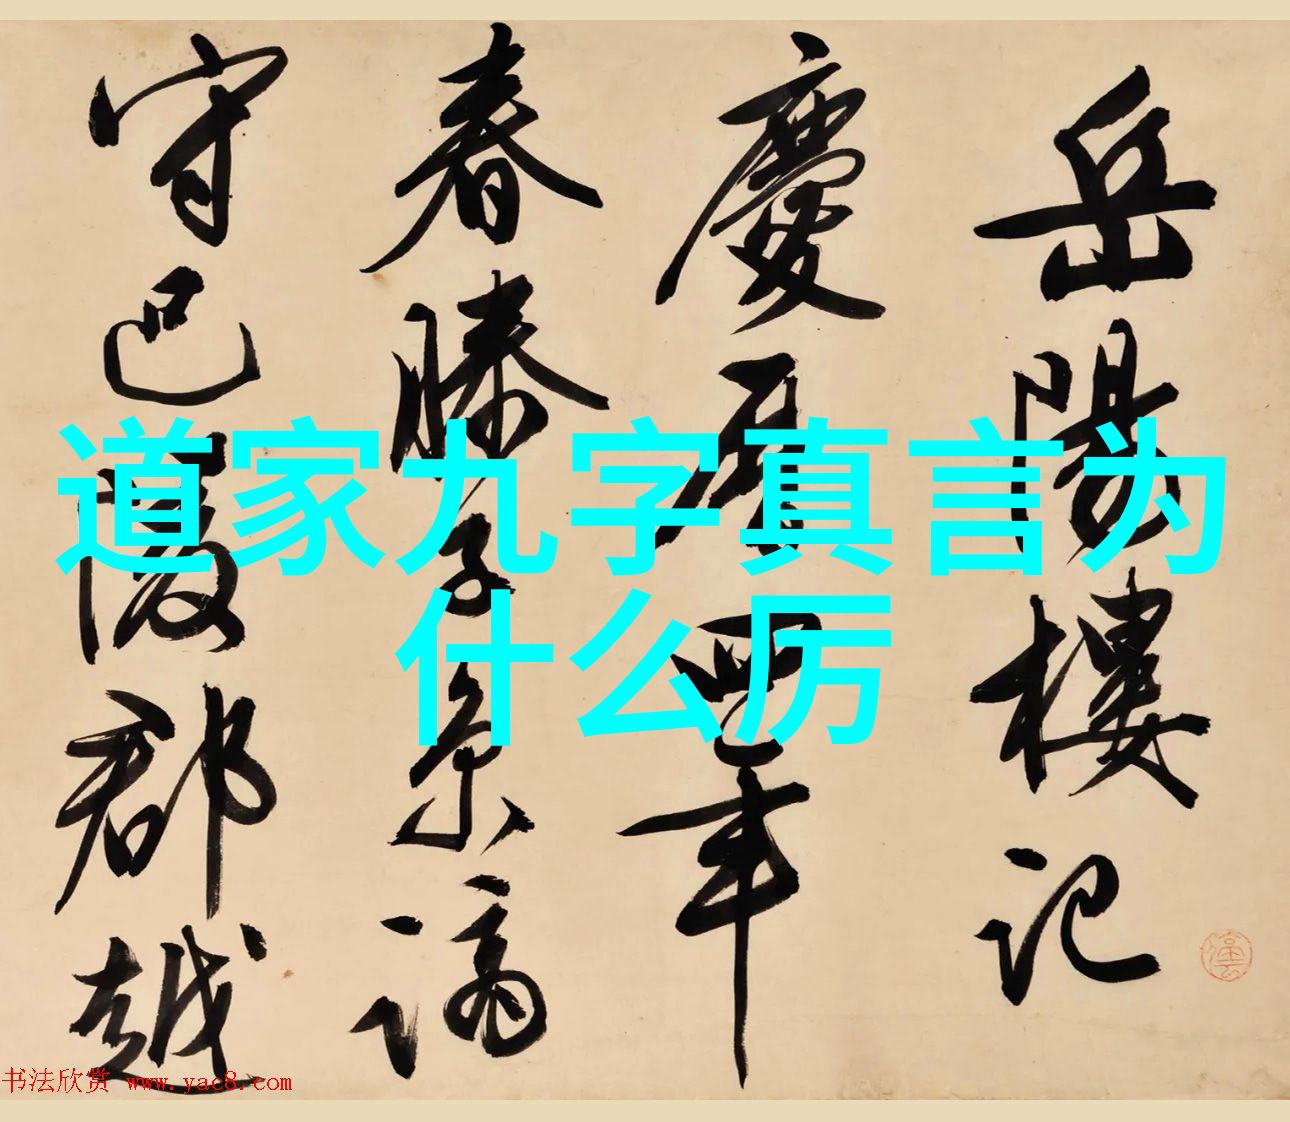 岳陽樓記
慶曆四年
春滕子京謫
守巴陵郡越
道家九字真言为
什么厉
书法欣赏 www.yac8.com